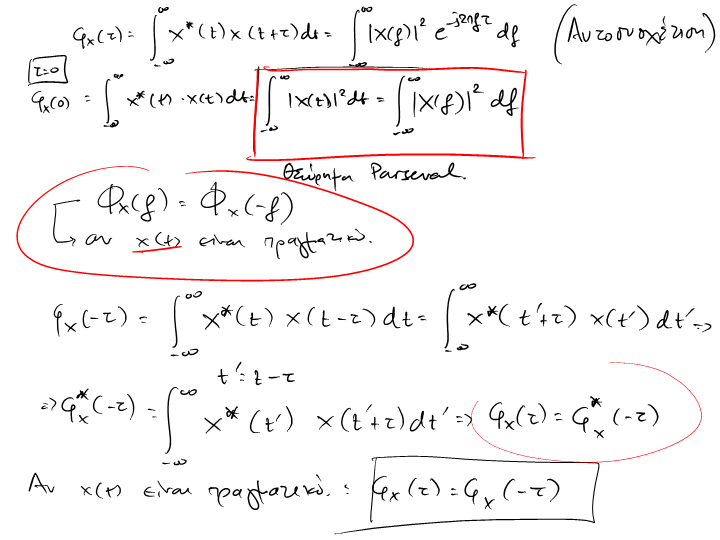 φₓ(τ) = ∫_{-∞}^{∞} x*(t) x(t+τ) dt = ∫_{-∞}^{∞} |X(f)|² e^{-j2πfτ} df (Αυτοσυσχέτιση)
τ=0
φₓ(0) = ∫_{-∞}^{∞} x*(t) · x(t) dt = ∫_{-∞}^{∞} |x(t)|² dt = ∫_{-∞}^{∞} |X(f)|² df
Θεώρημα Parseval.
Φₓ(f) = Φₓ(-f)
↳ αν x(t) είναι πραγματικό.
φₓ(-τ) = ∫_{-∞}^{∞} x*(t) x(t-τ) dt = ∫_{-∞}^{∞} x*(t'+τ) x(t') dt' ⇒
t' = t-τ
⇒ φₓ*(-τ) = ∫_{-∞}^{∞} x*(t') x(t'+τ) dt' ⇒ φₓ(τ) = φₓ*(-τ)
Αν x(t) είναι πραγματικό. : φₓ(τ) = φₓ(-τ)